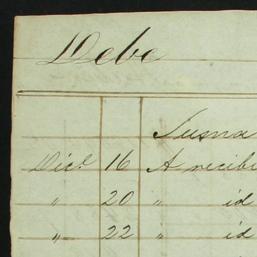 Debe
Suma
Dice 16 A recibi
" 20 " id
" 22 " id